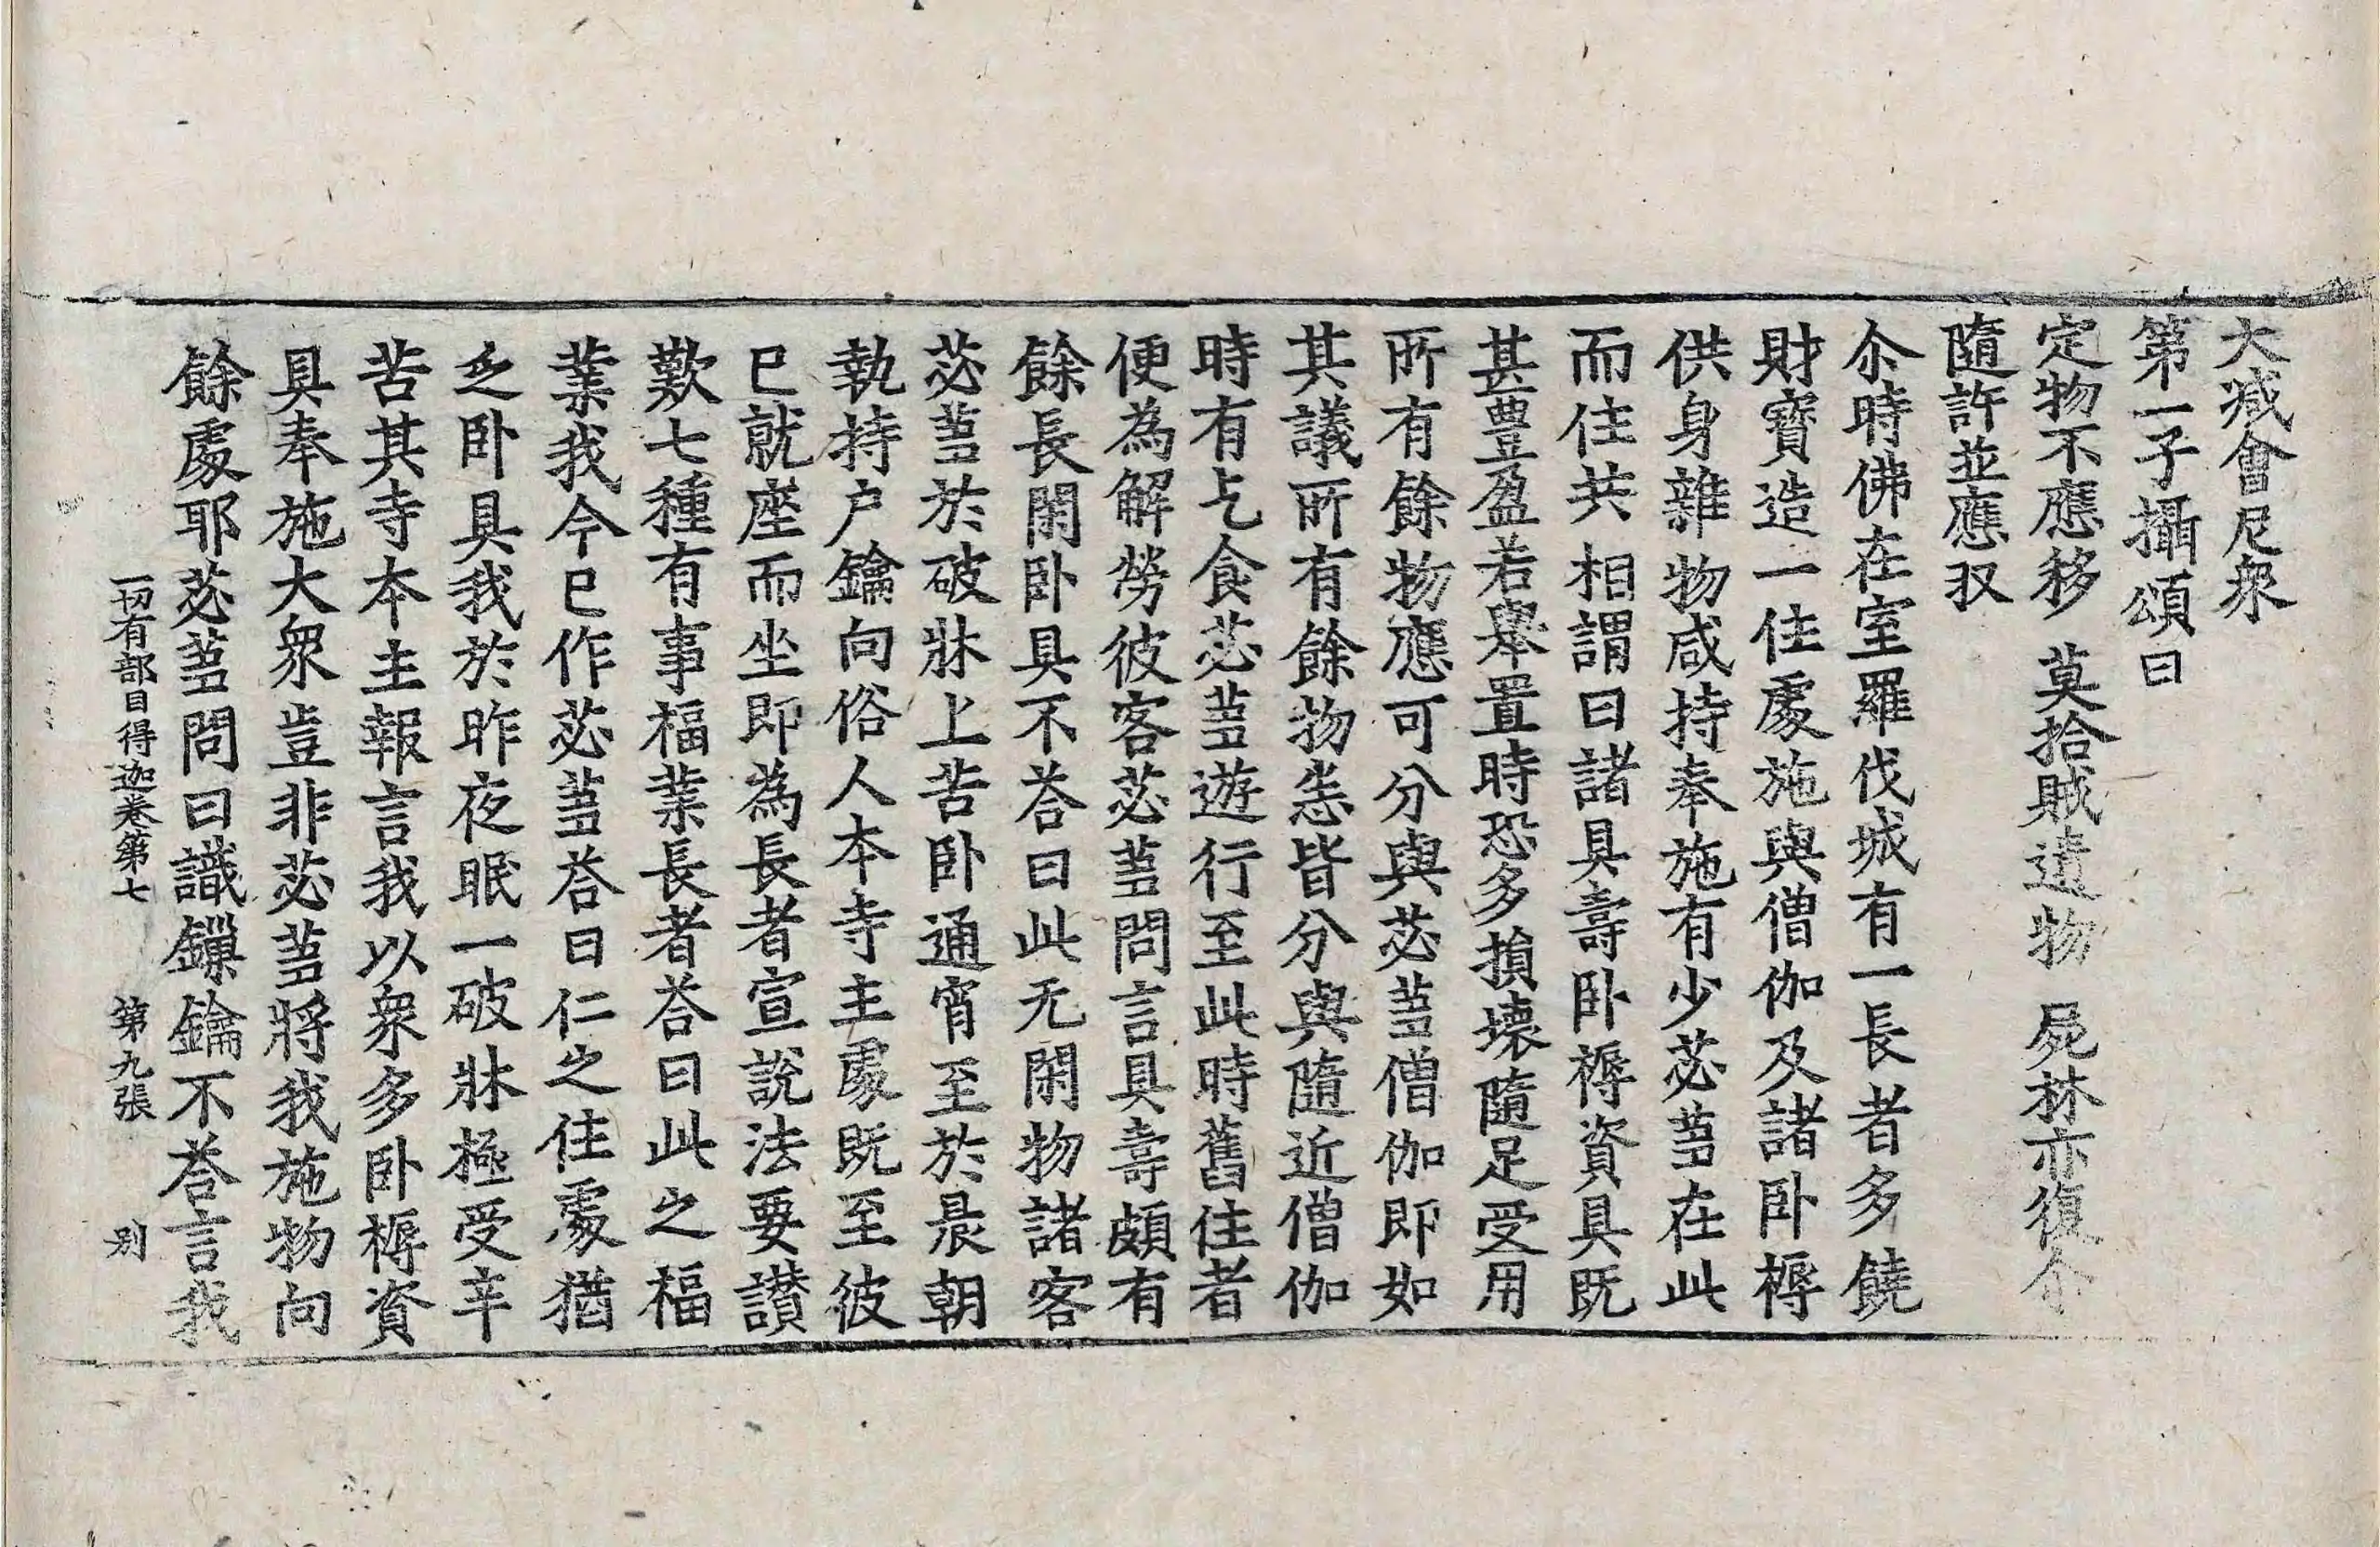 大減會尼衆
第一子攝頌曰
定物不應移　莫拾賊遺物　屍林亦復尒
隨許並應収
尒時佛在室羅伐城有一長者多饒
財寶造一住處施與僧伽及諸卧褥
供身雜物咸持奉施有少苾蒭在此
而住共相謂曰諸具壽卧褥資具既
甚豊盈若舉置時恐多損壞隨足受用
所有餘物應可分與苾蒭僧伽即如
其議所有餘物恙皆分與隨近僧伽
時有乞食苾蒭遊行至此時舊住者
便為解勞彼客苾蒭問言具壽頗有
餘長閑卧具不荅曰此无閑物諸客
苾蒭於破牀上苦卧通宵至於晨朝
執持户鑰向俗人本寺主處既至彼
已就座而坐即為長者宣說法要讃
歎七種有事福業長者荅曰此之福
業我今已作苾蒭荅曰仁之住處猶
乏卧具我於昨夜眠一破牀極受辛
苦其寺本主報言我以衆多卧褥資
具奉施大衆豈非苾蒭將我施物向
餘處耶苾蒭問曰識鏁鑰不荅言我
一切有部目得迦卷第七　第九張　別